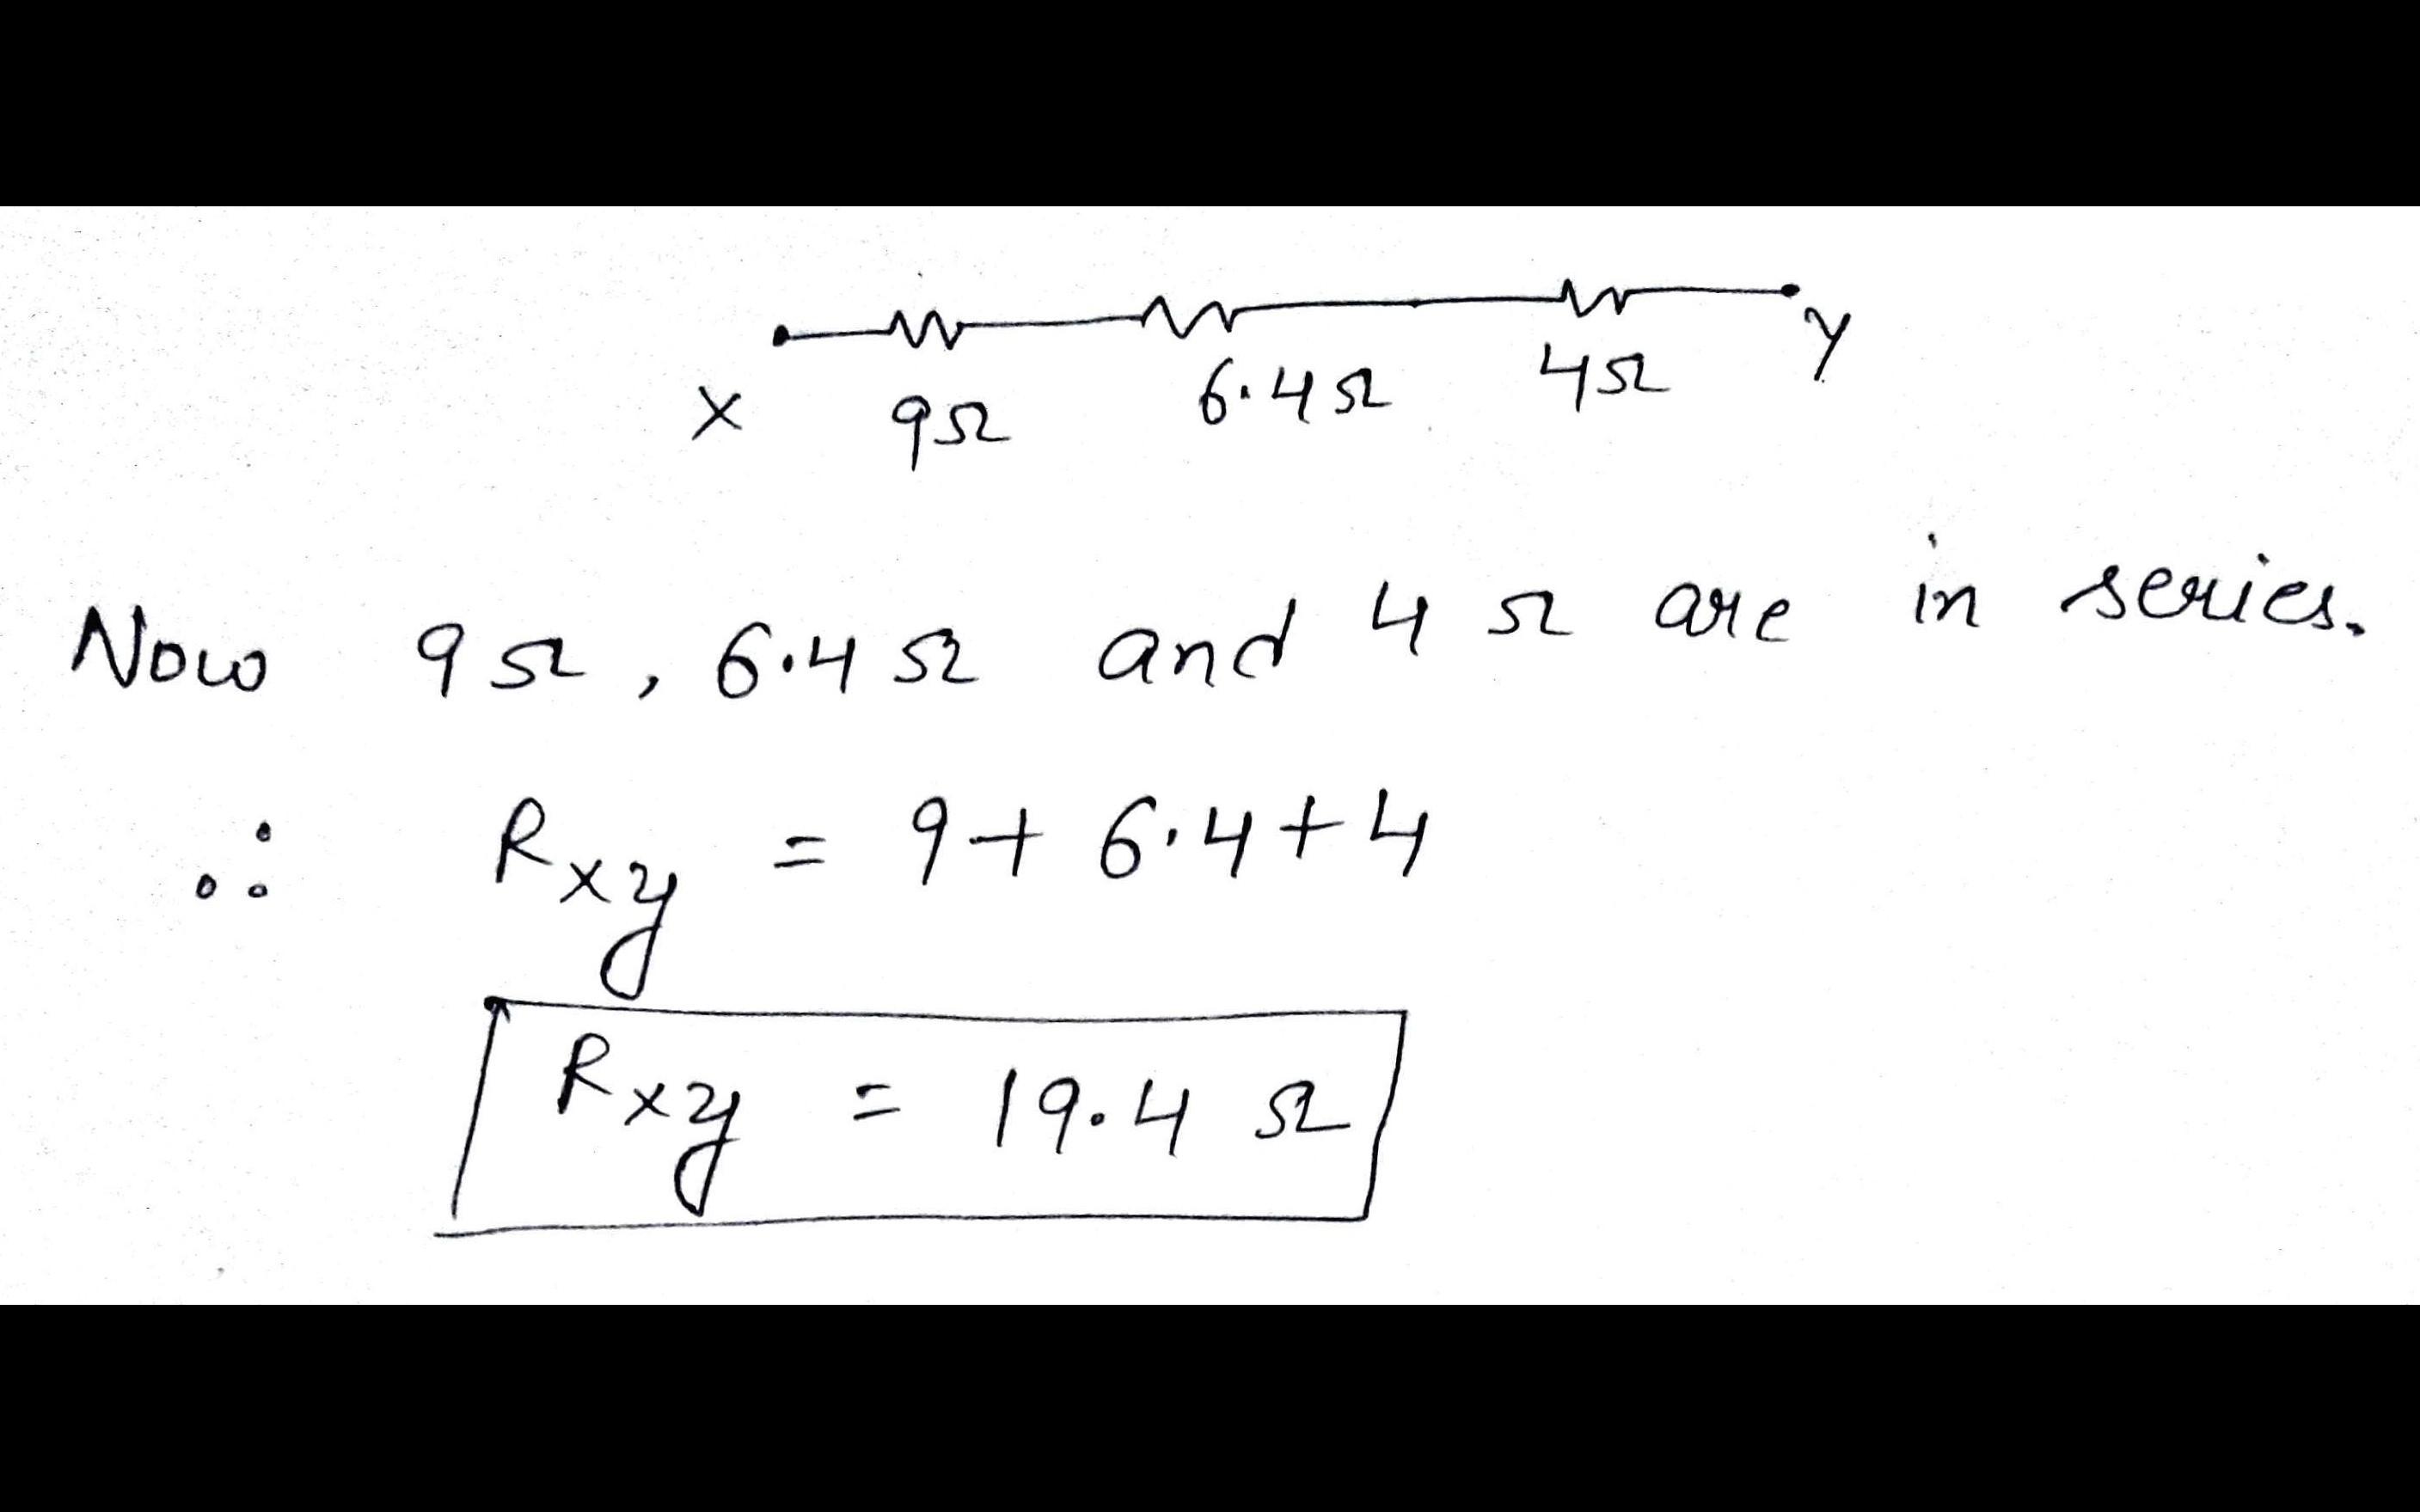 X 9Ω 6.4Ω 4Ω y
Now 9Ω, 6.4Ω and 4Ω are in series.
∴ Rxy = 9+6.4+4
Rxy = 19.4 Ω